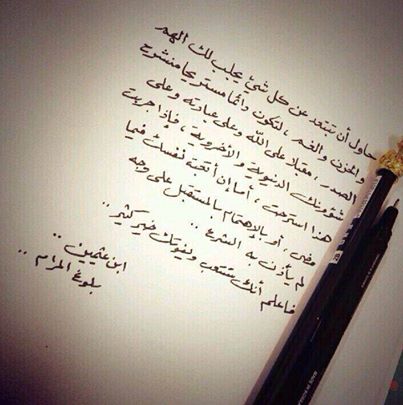 حاول أن تبتعد عن كل شيء يجلب لك الهم
والحزن والغم ، لتكون دائما مستريحا منشرح
الصدر ، مقبلا على الله وعلى عبادته وعلى
شؤونك الدنيوية والأخروية ، فإذا جربت
هذا استرحت ، أما إن أتعبت نفسك فيما
مضى ، أو بالإهتمام بالمستقبل على وجه
لم يأذن به الشرع ..
فاعلم أنك ستتعب وليفوتك خير كثير ..
ابن عثيمين ..
بلوغ المرام ..